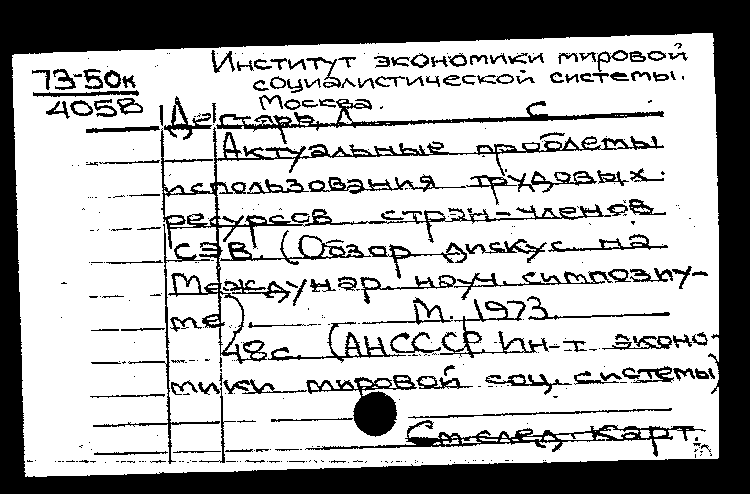 73-50к
4058
Институт экономики мировой
социалистической системы.
Москва.
Дегтярь, Л С
Актуальные проблемы
использования трудовых
ресурсов стран-членов
СЭВ. (Обзор дискус. на
Междунар. науч. симпозиу-
ме). М., 1973.
48с. (АНСССР. Ин-т эконо-
мики мировой соц. системы)
См. след. карт.